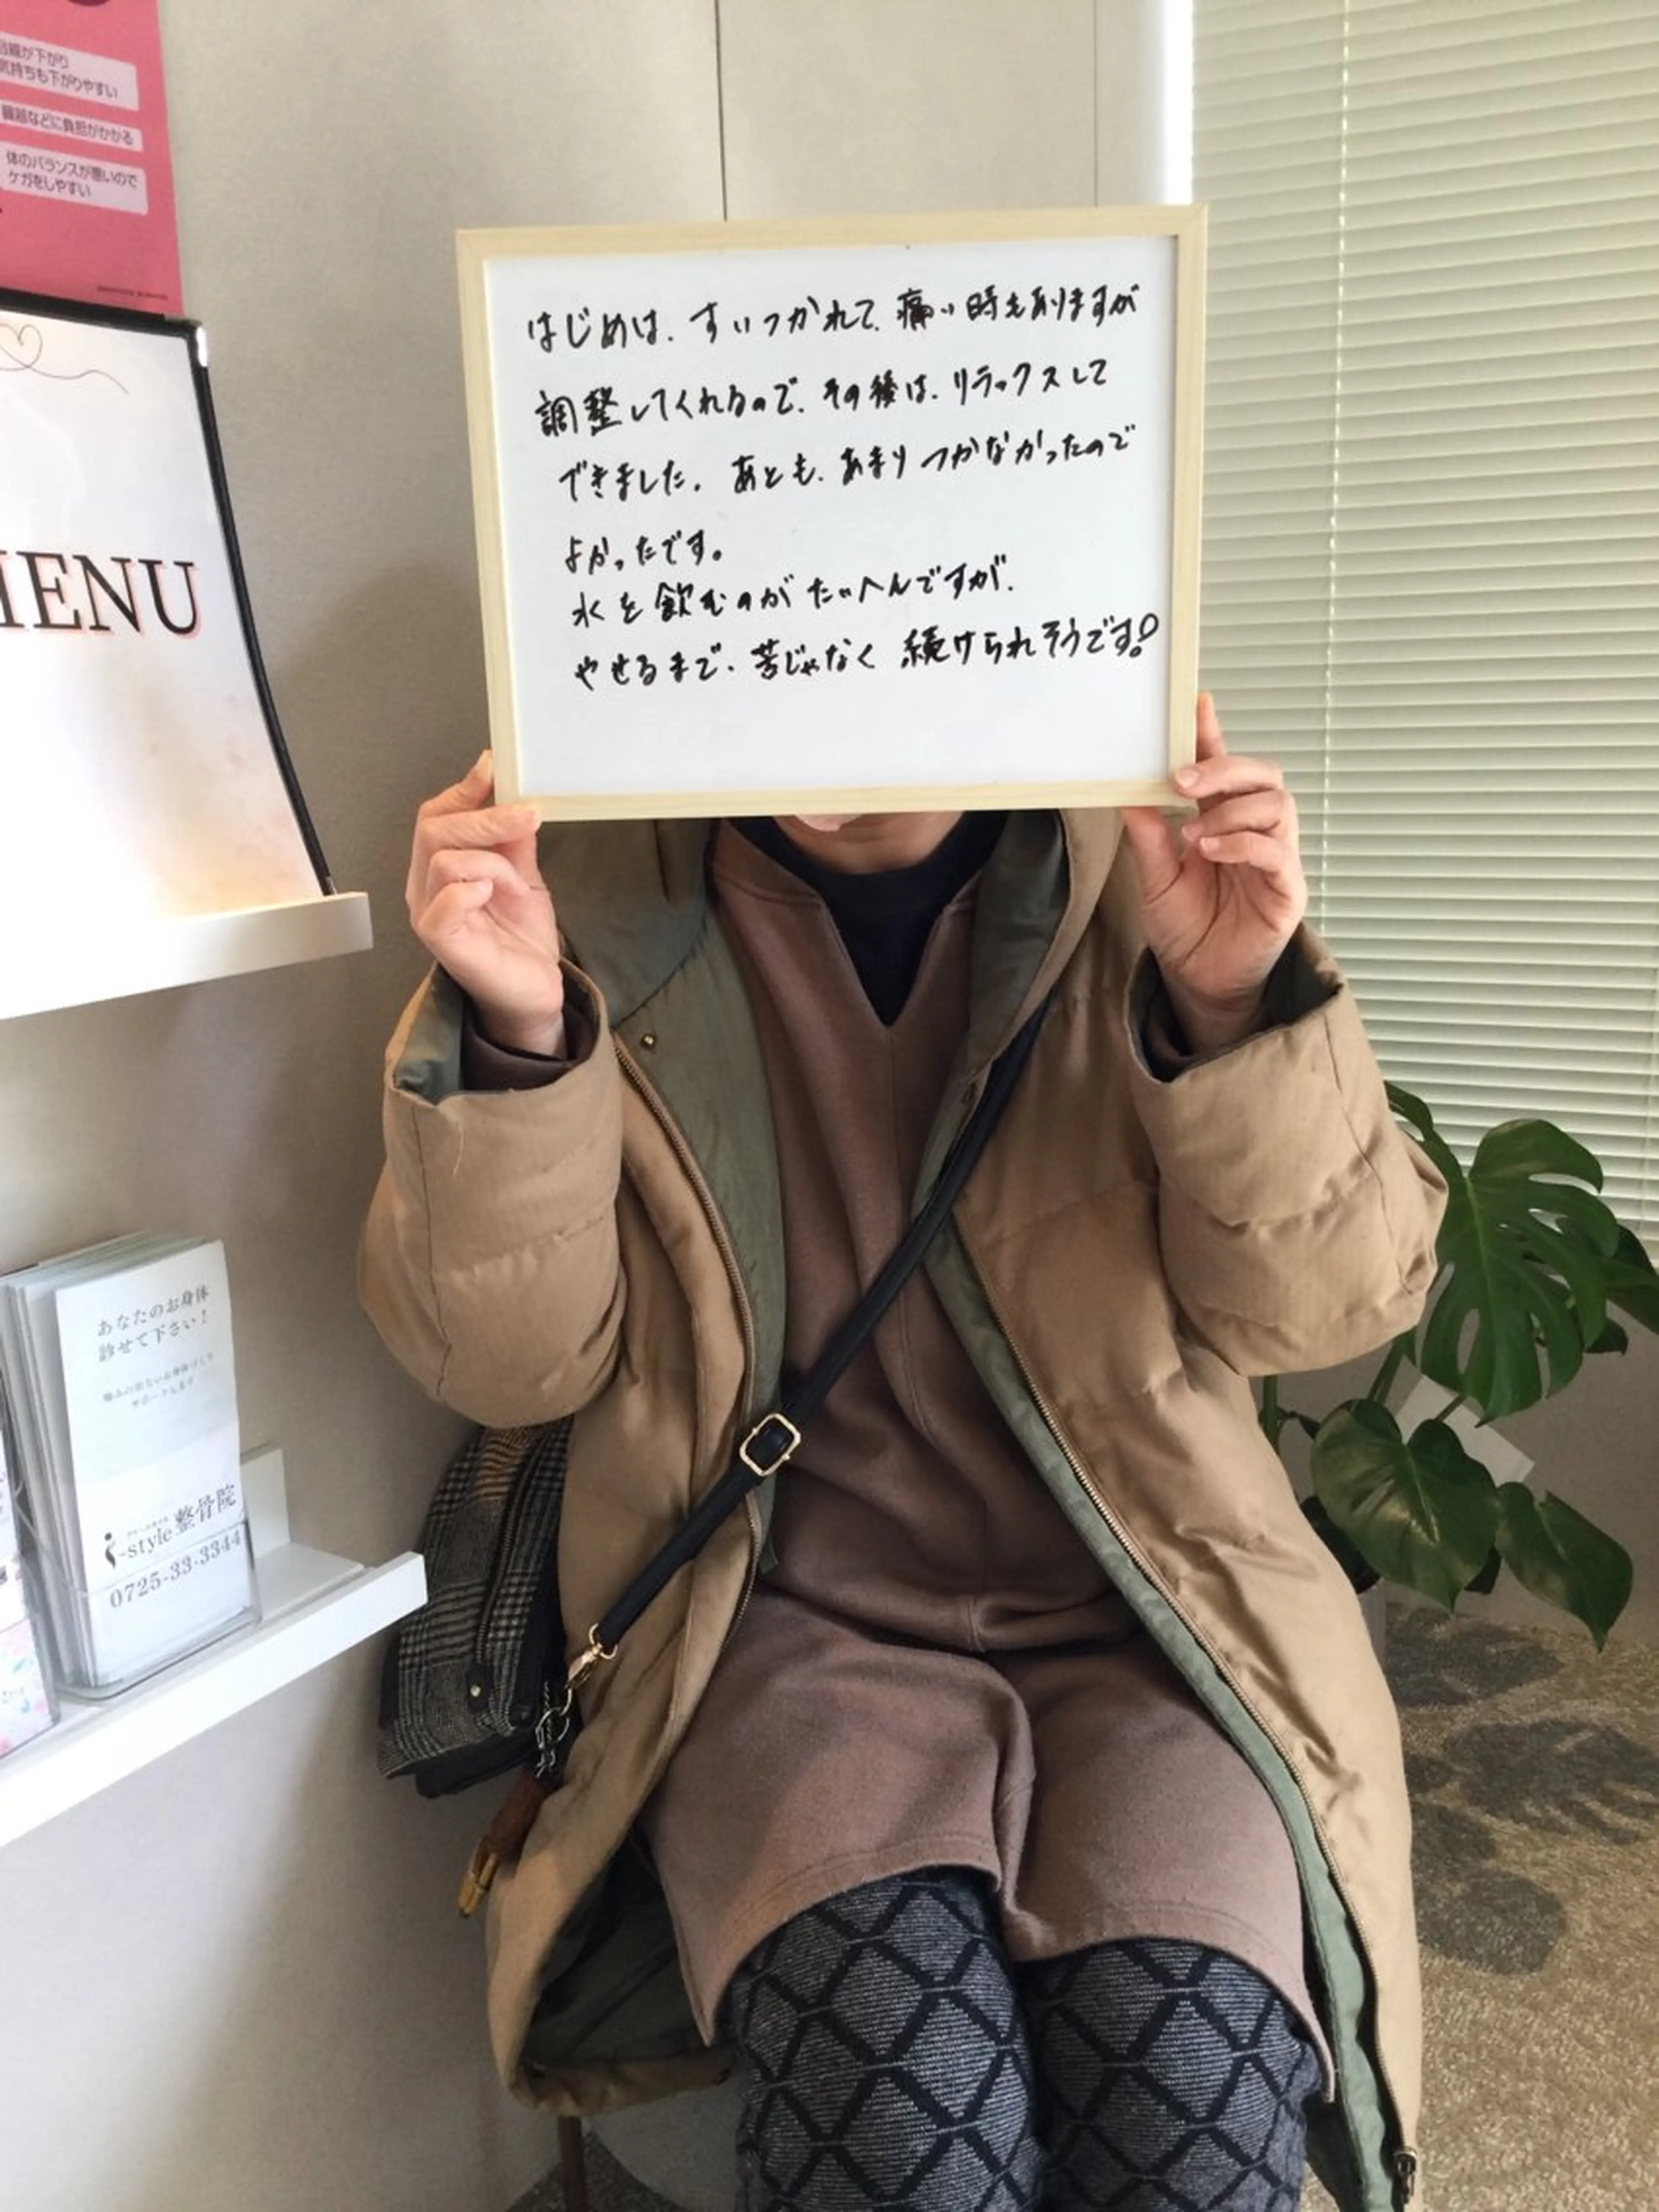 沿線が下がり
気持ちも下がりやすい
臓器などに負担がかかる
体のバランスが悪いので
ケガをしやすい
MENU
はじめは、すいつかれて、痛い時もありますが
調整してくれるので、その後は、リラックスして
できました。あとも、あまりつかなかったので
よかったです。
水を飲むのがたいへんですが、
やせるまで、苦じゃなく続けられそうです!
あなたのお身体
診せて下さい!
サポートします
i-style整骨院
0725-33-3344